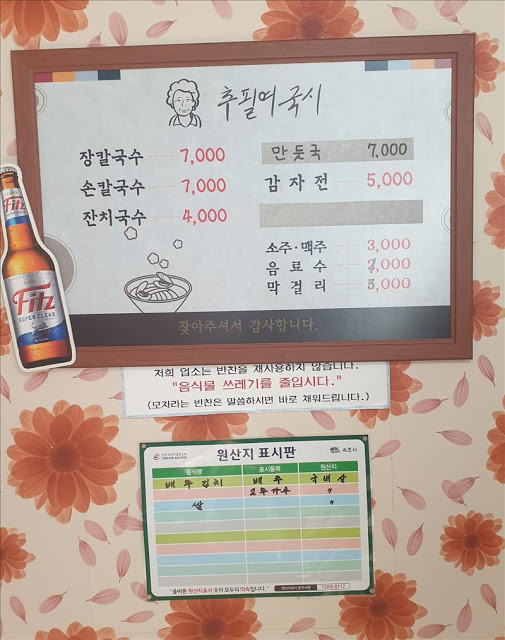 추필여국시
장칼국수 7,000
손칼국수 7,000
잔치국수 4,000
만둣국 7,000
감자전 5,000
소주·맥주 3,000
음료수 ,000
막걸리 3,000
찾아주셔서 감사합니다.
Fitz
Fitz
SUPER CLEAR
저희 업소는 반찬을 재사용하지 않습니다.
"음식물 쓰레기를 줄입시다."
(모자라는 반찬은 말씀하시면 바로 채워드립니다.)
원산지 표시판
속초시
음식명 표시품목 원산지
배추김치 배추 국내산
고추가루 〃
쌀 〃
"올바른 원산지표시 우리 모두의 약속입니다."